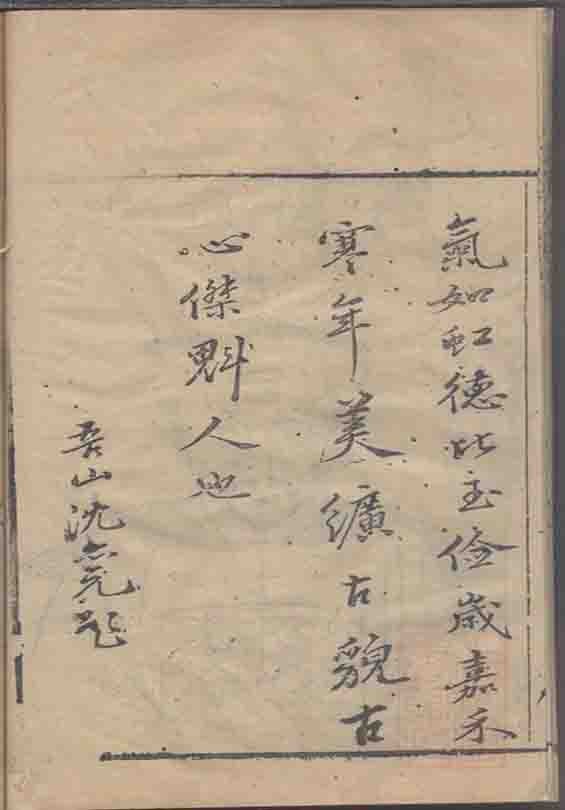 氣如虹德比玉儉歲嘉禾
寒年美纊古貌古
心傑魁人也
吾山沈亮題